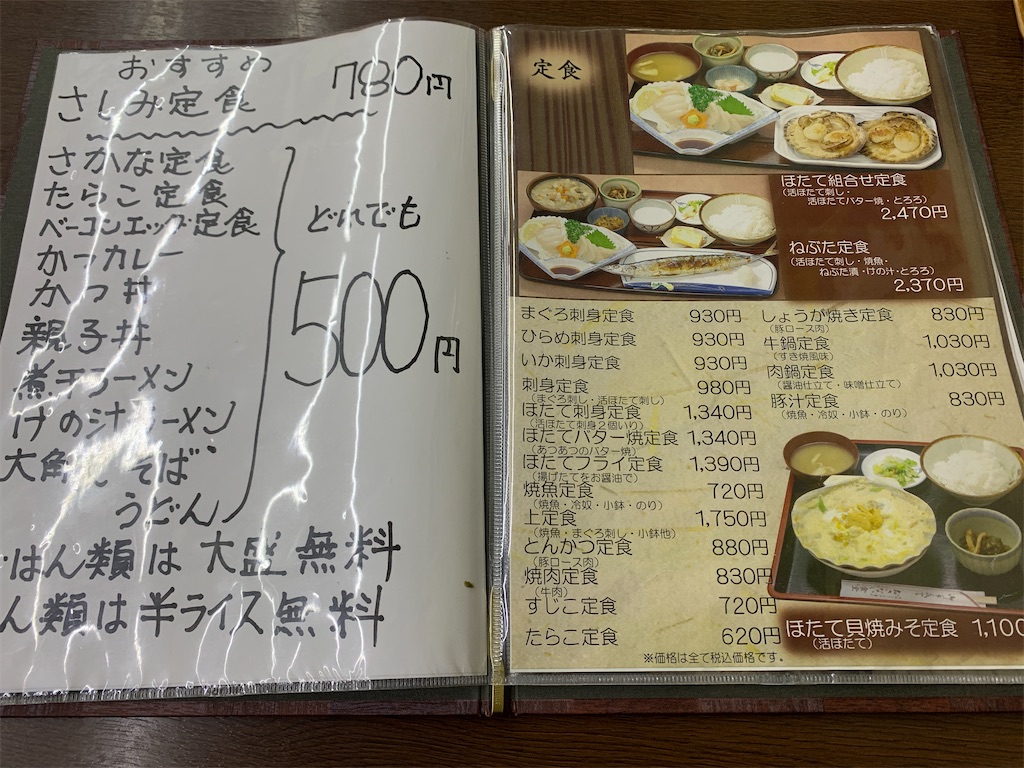 おすすめ
さしみ定食 780円
さかな定食
たらこ定食
ベーコンエッグ定食
かつカレー
かつ丼
親子丼
煮干ラーメン
けの汁ラーメン
大角天そば
うどん
どれでも
500円
ごはん類は大盛無料
ん類は半ライス無料
定食
ほたて組合せ定食
(活ほたて刺し・
活ほたてバター焼・とろろ)
2,470円
ねぶた定食
(活ほたて刺し・焼魚・
ねぶた漬・けの汁・とろろ)
2,370円
まぐろ刺身定食 930円
ひらめ刺身定食 930円
いか刺身定食 930円
刺身定食 980円
(まぐろ刺し・活ほたて刺し)
ほたて刺身定食 1,340円
(活ほたて刺身2個いり)
ほたてバター焼定食 1,340円
(あつあつのバター焼)
ほたてフライ定食 1,390円
(揚げたてをお醤油で)
焼魚定食 720円
(焼魚・冷奴・小鉢・のり)
上定食 1,750円
(焼魚・まぐろ刺し・小鉢他)
とんかつ定食 880円
(豚ロース肉)
焼肉定食 830円
(牛肉)
すじこ定食 720円
たらこ定食 620円
しょうが焼き定食 830円
(豚ロース肉)
牛鍋定食 1,030円
(すき焼風味)
肉鍋定食 1,030円
(醤油仕立て・味噌仕立て)
豚汁定食 830円
(焼魚・冷奴・小鉢・のり)
ほたて貝焼みそ定食 1,100
(活ほたて)
※価格は全て税込価格です。